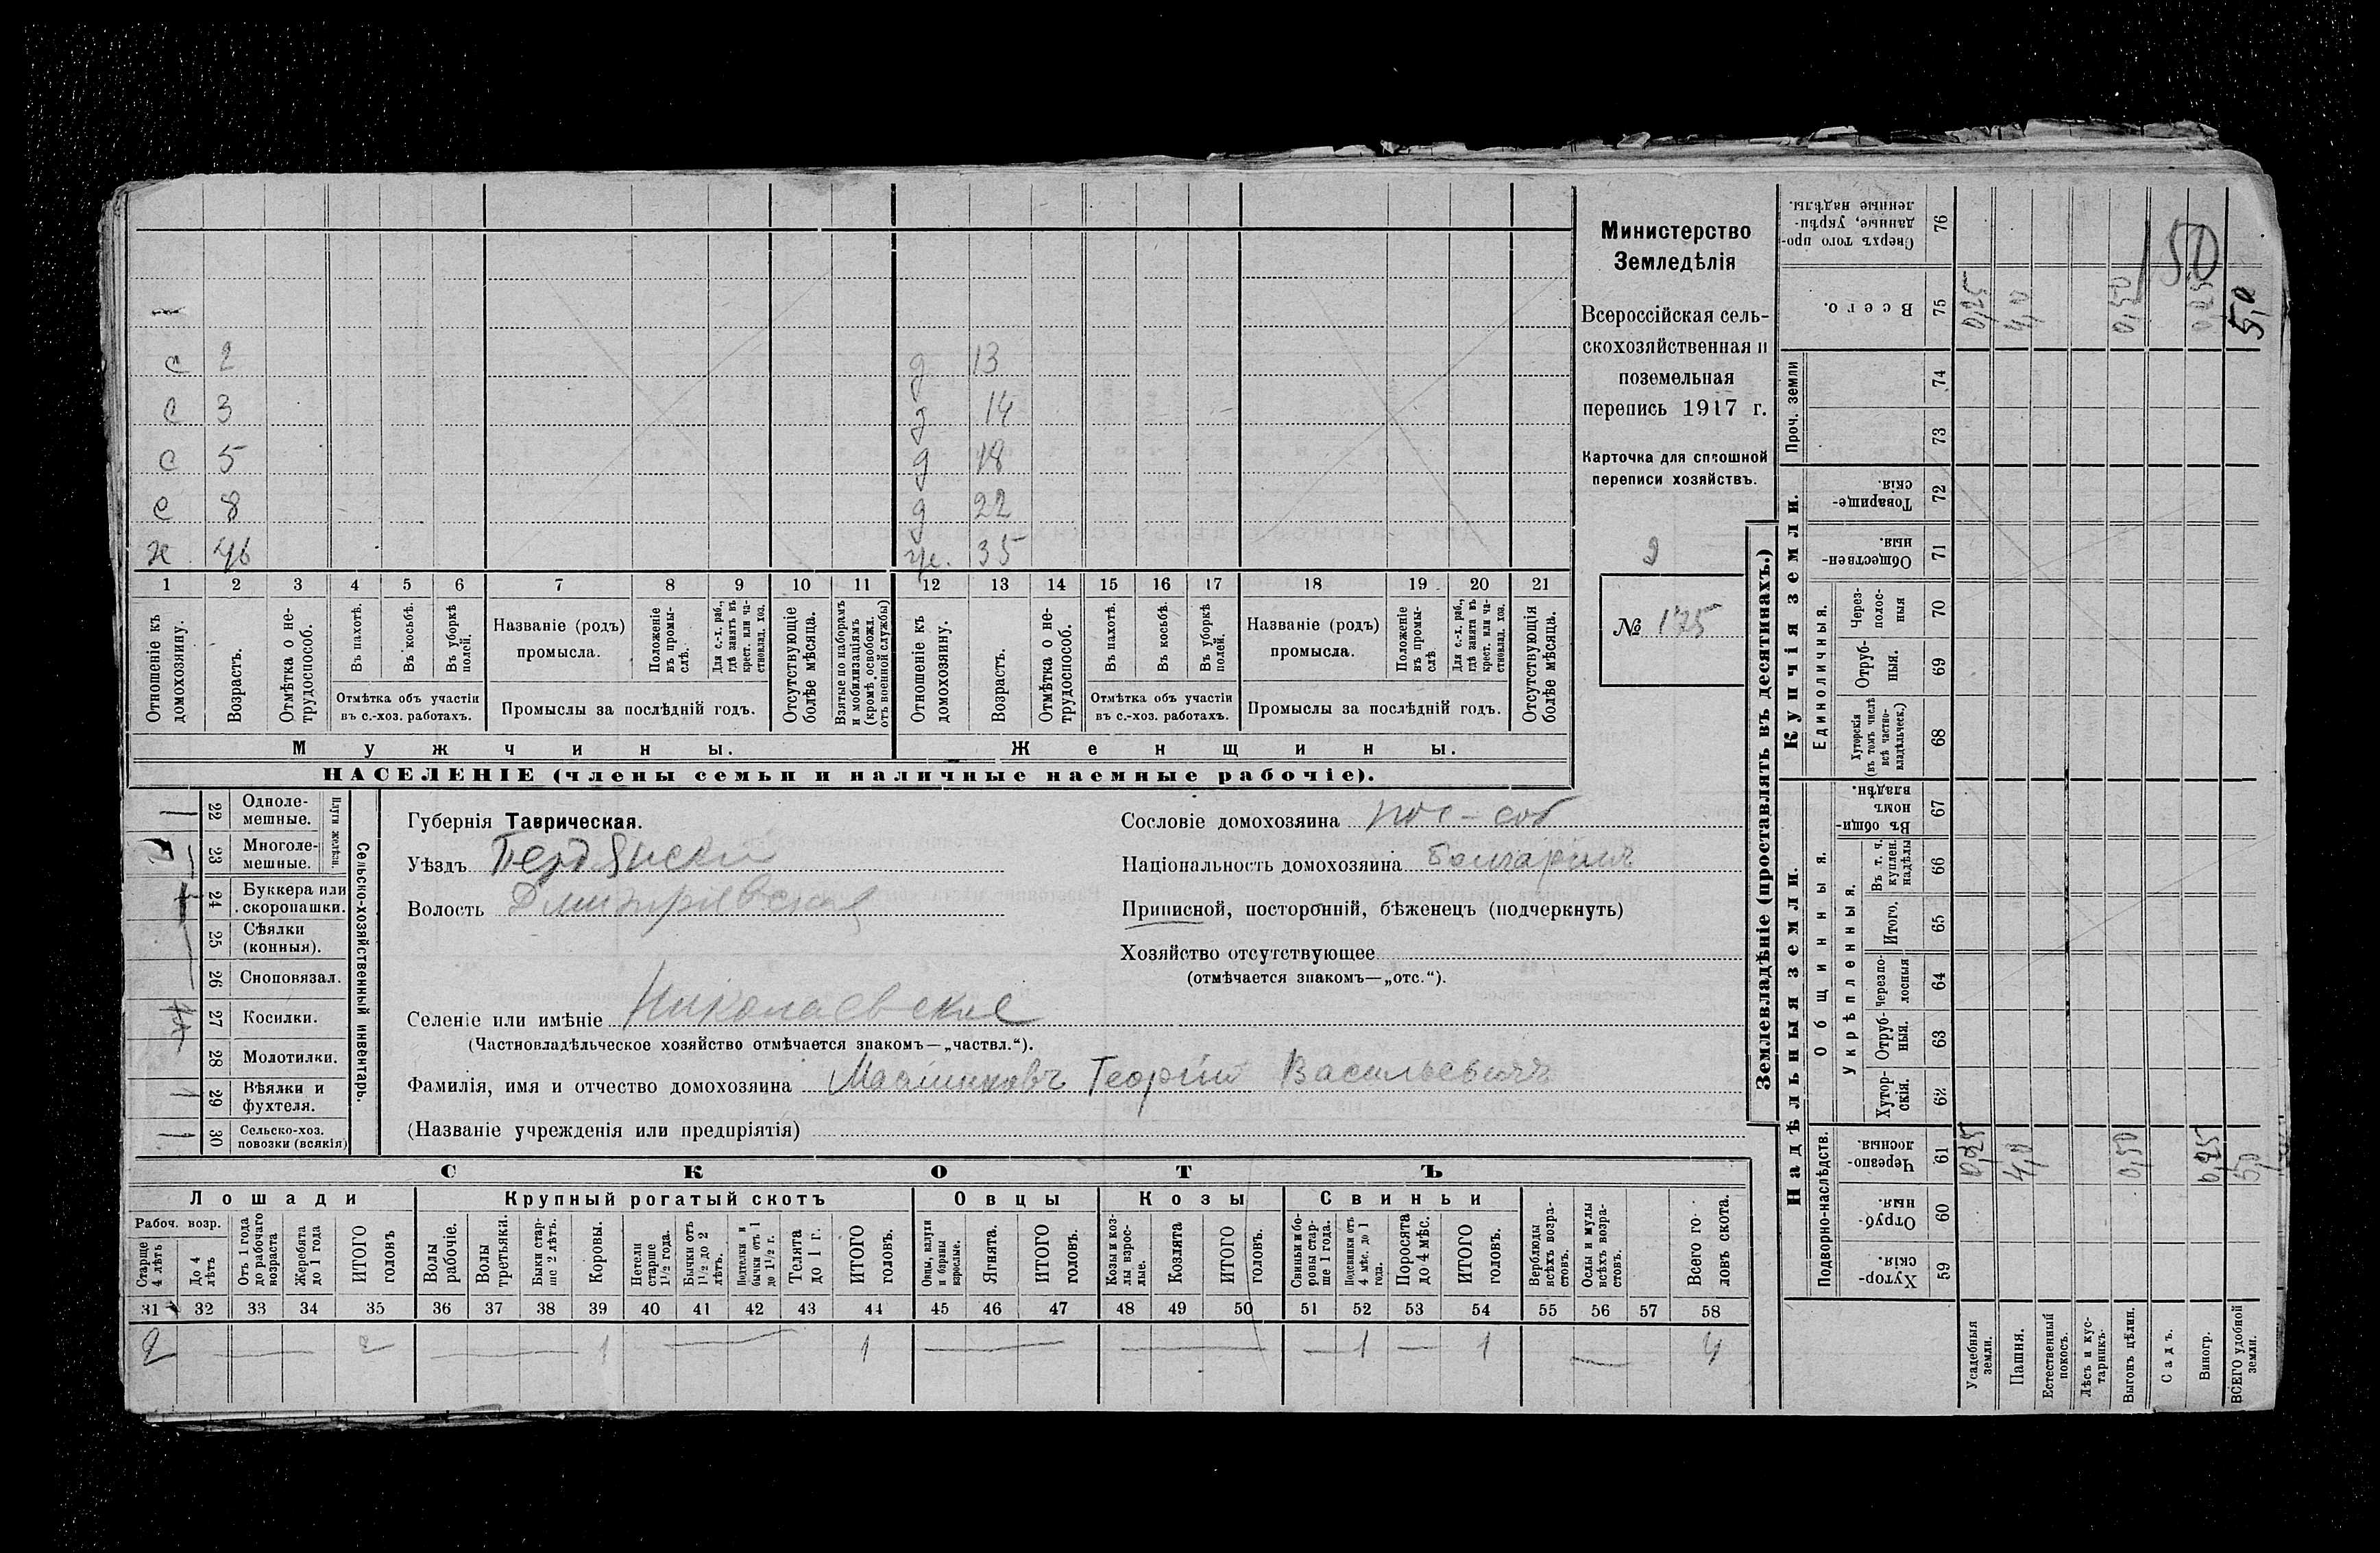 с 2 д 13
с 3 д 14
с 5 д 18
с 8 д 22
х 46 ж. 35
1 2 3 4 5 6 7 8 9 10 11 12 13 14 15 16 17 18 19 20 21
Отношеніе къ домохозяину.
Возрастъ.
Отмѣтка о нетрудоспособ.
Въ пахотѣ.
Въ косьбѣ.
Въ уборкѣ полей.
Отмѣтка объ участіи
въ с.-хоз. работахъ.
Названіе (родъ)
промысла.
Положеніе въ промыслѣ.
Для с.-х. раб., гдѣ занятъ въ крест. или частновлад. хоз.
Промыслы за послѣдній годъ.
Отсутствующіе болѣе мѣсяца.
Взятые по наборамъ и мобилизаціямъ (кромѣ освобожд. отъ военной службы)
Отношеніе къ домохозяину.
Возрастъ.
Отмѣтка о нетрудоспособ.
Въ пахотѣ.
Въ косьбѣ.
Въ уборкѣ полей.
Отмѣтка объ участіи
въ с.-хоз. работахъ.
Названіе (родъ)
промысла.
Положеніе въ промыслѣ
Для с.-х. раб., гдѣ занята въ крест. или частновлад. хоз.
Промыслы за послѣдній годъ.
Отсутствующія болѣе мѣсяца.
Мужчины.
Женщины.
НАСЕЛЕНІЕ (члены семьи и наличные наемные рабочіе).
Министерство
Земледѣлія
Всероссійская сель-
скохозяйственная и
поземельная
перепись 1917 г.
Карточка для сплошной
переписи хозяйствъ.
№ 175
Сельско-хозяйственный инвентарь.
Плуги желѣзн.
22 Однолемешные.
23 Многолемешные.
24 Буккера или скоропашки.
25 Сѣялки (конныя).
26 Сноповязал.
27 Косилки.
28 Молотилки.
29 Вѣялки и фухтеля.
30 Сельско-хоз. повозки (всякія)
Губернія Таврическая.
Уѣздъ Бердянскій
Волость Дмитріевская
Селеніе или имѣніе Николаевское
(Частновладѣльческое хозяйство отмѣчается знакомъ—„частвл.“).
Фамилія, имя и отчество домохозяина Георгій Васильевичъ
(Названіе учрежденія или предпріятія)
Сословіе домохозяина пос-соб
Національность домохозяина болгаринъ
Приписной, посторонній, бѣженецъ (подчеркнуть)
Хозяйство отсутствующее
(отмѣчается знакомъ—„отс.“).
СКОТЪ
Лошади
Рабоч. возр.
Старше 4 лѣтъ
До 4 лѣтъ
Отъ 1 года до рабочаго возраста
Жеребята до 1 года
ИТОГО головъ
Крупный рогатый скотъ
Волы рабочіе.
Волы третьяки.
Быки старше 2 лѣтъ.
Коровы.
Нетели старше 1½ года.
Бычки отъ 1½ до 2 лѣтъ.
Телята до 1 г.
ИТОГО головъ.
Овцы
Овцы, валухи и бараны взрослые.
Ягнята.
ИТОГО головъ.
Козы
Козы и козлы взрослые.
Козлята
ИТОГО головъ.
Свиньи
Свиньи и боровы старше 1 года.
Подсвинки отъ 4 мѣс. до 1 года.
Поросята до 4 мѣс.
ИТОГО головъ.
Верблюды всѣхъ возрастовъ.
Ослы и мулы всѣхъ возрастовъ.
Всего головъ скота.
31 32 33 34 35 36 37 38 39 40 41 42 43 44 45 46 47 48 49 50 51 52 53 54 55 56 57 58
2 2 1 1 1 1 4
Землевладѣніе (проставлять въ десятинахъ.)
Надѣльныя земли.
Подворно-наслѣдств.
Хуторскія. 59
Отрубныя. 60
Черезполосныя. 61
Общинныя.
Укрѣпленныя.
Хуторскія. 62
Отрубныя. 63
Черезполосныя 64
Итого. 65
Въ т. ч. куплен. надѣлы 66
Въ общинномъ владѣн. 67
Купчія земли.
Единоличныя.
Хуторскія (въ томъ числѣ всѣ частновладѣльческ.) 68
Отрубныя. 69
Черезполосныя 70
Общественныя. 71
Товарищескія. 72
Проч. земли
73
74
Всего. 75
Сверхъ того проданные, укрѣпленные надѣлы. 76
Усадебныя земли. 0,25 0,25
Пашня. 4,0 4,0
Естественный покосъ.
Лѣсъ и кустарникъ.
Выгонъ цѣлин. 0,50 0,50
Садъ.
Виногр. 0,25
ВСЕГО удобной земли. 5,0 5,0
150